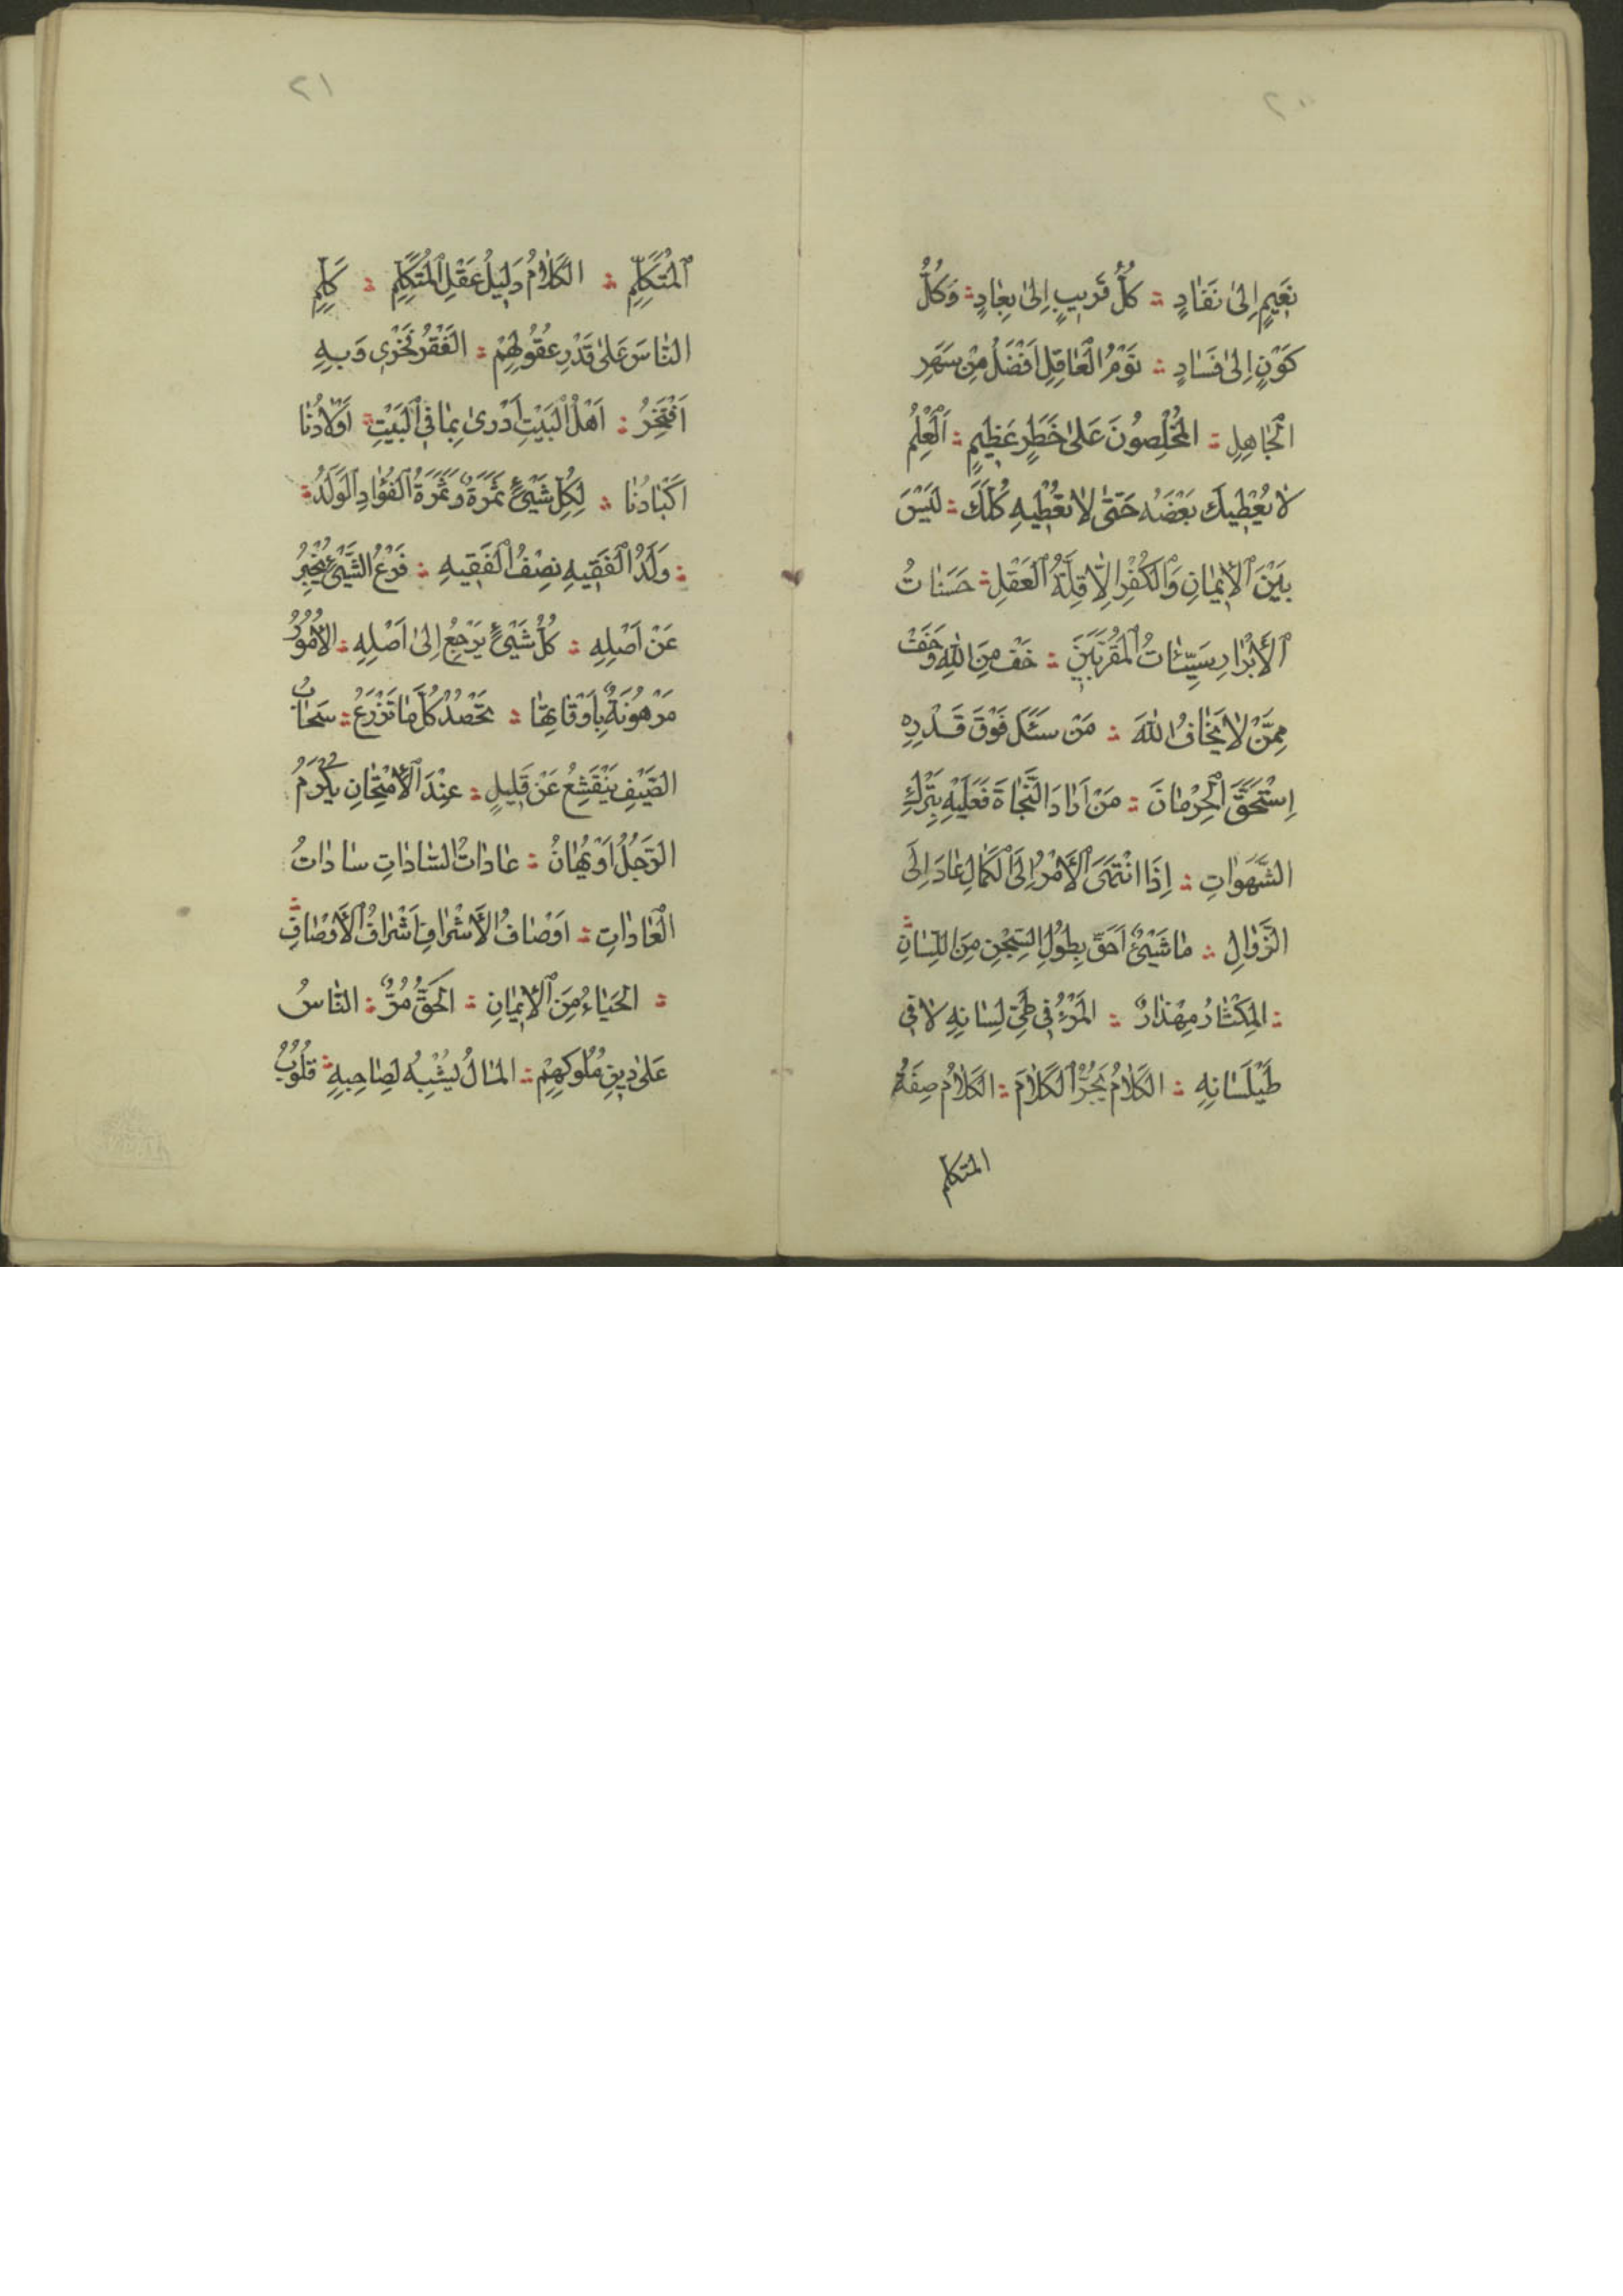 ٢٠
نَعِيمٍ إِلىٰ نَفَادٍ ۞ كُلُّ قَرِيبٍ اِلىٰ بِعَادٍ ۞ وَكُلُّ
كَوْنٍ اِلىٰ فَسَادٍ ۞ نَوْمُ الْعَاقِلِ اَفْضَلُ مِنْ سَهَرِ
الْجَاهِلِ ۞ المُخْلِصُونَ عَلىٰ خَطَرٍ عَظِيمٍ ۞ اَلْعِلْمُ
لَا يُعْطِيكَ بَعْضَهُ حَتّىٰ لَا تُعْطِيهِ كُلَّكَ ۞ لَيْسَ
بَيْنَ الْاِيمَانِ وَالْكُفْرِ اِلَّا قِلَّةُ الْعَقْلِ ۞ حَسَنَاتُ
الْأَبْرَارِ سَيِّئَاتُ الْمُقَرَّبِينَ ۞ خَفْ مِنَ اللّٰهِ وَخَفْ
مِمَّنْ لَا يَخَافُ اللّٰهَ ۞ مَنْ سَئَلَ فَوْقَ قَدْرِهِ
اِسْتَحَقَّ الْحِرْمَانَ ۞ مَنْ اَرَادَ النَّجَاةَ فَعَلَيْهِ بِتَرْكِ
الشَّهَوَاتِ ۞ إِذَا انْتَهَىَ الْأَمْرُ اِلَى الْكَمَالِ عَادَ اِلَى
الزَّوَالِ ۞ مَا شَيْئٌ اَحَقَّ بِطُولِ السِّجْنِ مِنَ اللِّسَانِ ۞
۞ المِكْثَارُ مِهْذَارٌ ۞ المَرْءُ فِي طَيِّ لِسَانِهِ لَا فِي
طَيْلَسَانِهِ ۞ الكَلَامُ يَجُرُّ الْكَلَامَ ۞ الكَلَامُ صِفَةُ
المتكلم
٢١
الْمُتَكَلِّمِ ۞ الكَلَامُ دَلِيلُ عَقْلِ الْمُتَكَلِّمِ ۞ كَلِّمِ
النَّاسَ عَلىٰ قَدْرِ عُقُولِهِمْ ۞ الفَقْرُ فَخْرِي وَبِهِ
اَفْتَخِرُ ۞ اَهْلُ الْبَيْتِ اَدْرىٰ بِمَا فِي الْبَيْتِ ۞ اَوْلَادُنَا
اَكْبَادُنَا ۞ لِكُلِّ شَيْئٍ ثَمَرَةٌ وَثَمَرَةُ الْفُؤَادِ الْوَلَدُ ۞
۞ وَلَدُ الْفَقِيهِ نِصْفُ الْفَقِيهِ ۞ فَرْعُ الشَّيْئِ يُخْبِرُ
عَنْ اَصْلِهِ ۞ كُلُّ شَيْئٍ يَرْجِعُ اِلىٰ اَصْلِهِ ۞ الاُمُورُ
مَرْهُونَةٌ بِاَوْقَاتِهَا ۞ تَحْصُدُ كُلَّ مَا تَزْرَعُ ۞ سَحَابُ
الصَّيْفِ يَنْقَشِعُ عَنْ قَلِيلٍ ۞ عِنْدَ الْاُمْتِحَانِ يُكْرَمُ
الرَّجُلُ اَوْ يُهَانُ ۞ عَادَاتُ السَّادَاتِ سَادَاتُ
الْعَادَاتِ ۞ اَوْصَافُ الْاَشْرَافِ اَشْرَافُ الْاَوْصَافِ ۞
۞ الحَيَاءُ مِنَ الْاِيمَانِ ۞ الحَقُّ مُرٌّ ۞ النَّاسُ
عَلىٰ دِينِ مُلُوكِهِمْ ۞ المَالُ يُشْبِهُ لِصَاحِبِهِ ۞ قُلُوبُ